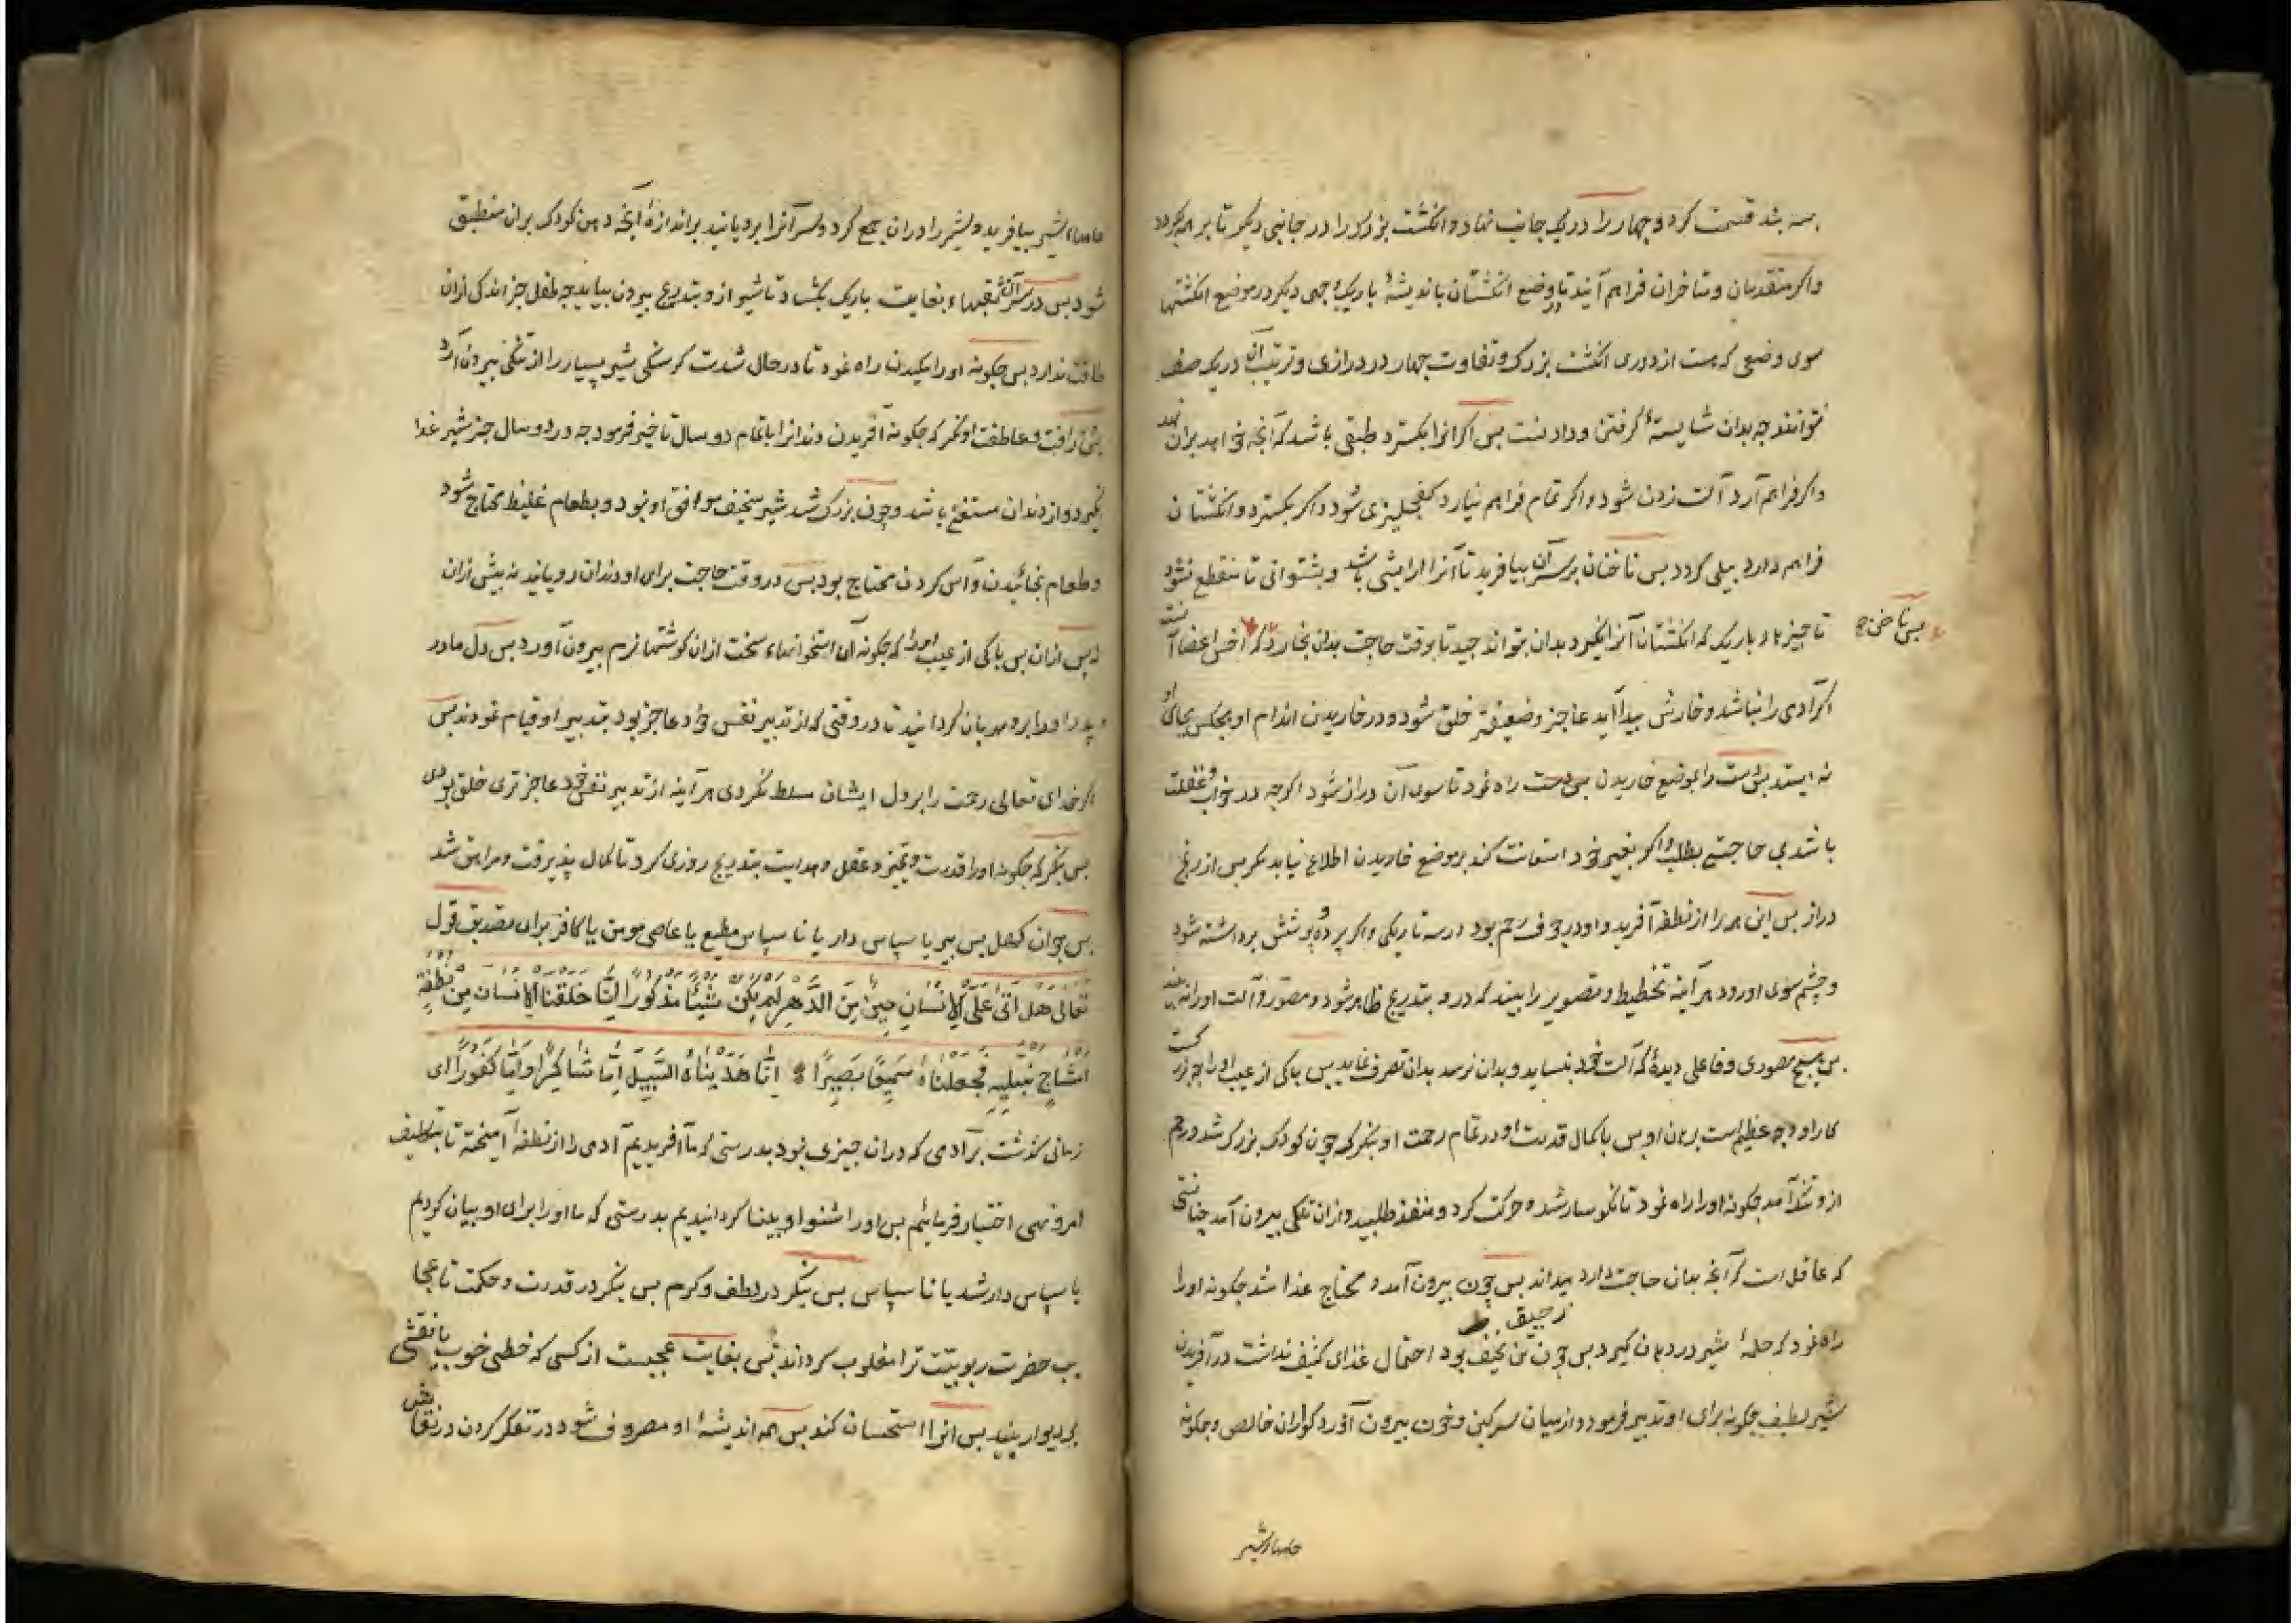 بسه بند قسمت کرد و چهار را در یک جانب نهاد و انکشت بزرک را در جانبی دیکر تا بر همه بکردد
واکر متقدمان و متاخران فراهم آیند تا در وضع انکشتان باندیشهٔ باریک وجهی دیکر در موضع انکشتها
سوی وضعی که هست از دوری انکشت بزرک و تفاوت چهار در درازی و ترتیب آن در یک صف
نتوانند چه بدان شایستهٔ کرفتن و دادنست بس اکر انرا بکسترد طبقی باشد که آنچه خواهد بران نهد
واکر فراهم آرد آلت زدن شود واکر تمام فراهم نیارد کفجلیزی شود واکر بکسترد و انکشتان
فراهم دارد بیلی کردد بس ناخنان بر سر آن بیافرید تا آنرا ارایشی باشد و بشتوانی تا منقطع نشود
تا چیزهاء باریک که انکشتان آنرا نکیرد بدان بتواند چید تا بوقت حاجت بدان بخارد که اخس اعضاست
بس ناخن که
اکر آدمی را نباشد و خارش پیدا آید عاجز و ضعیفتر خلق شود و در خاریدن اندام او هیچکس بجای او
نه ایستد بس دست را بموضع خاریدن راه نمود تا سوی آن دراز شود اکرچه در خواب و غفلت
باشد بی حاجت بطلب واکر بغیر خود استعانت کند بر موضع خاریدن اطلاع نیابد مکر بس از رنج
دراز بس این همه را از نطفه آفرید و او در جوف رحم بود در سه تاریکی واکر پرده و پوشش برداشته شود
و چشم سوی او رود هر آینه تخطیط و تصویر را بیند که درو بتدریج ظاهر شود و مصور و آلت او را نه بیند
بس هیچ مصوری و فاعلی دیدهٔ که آلت خود بنساید و بدان نرسد بدان تصرف نماید بس باکی از عیب او را چه بزرکست
کار او و چه عظیم است برهان او بس با کمال قدرت او در تمام رحمت او بنکر که چون کودک بزرک شد و رحم
ازو تنک آمد چکونه او را راه نمود تا نکوسار شد و حرکت کرد و منفذ طلبید و ازان تنکی بیرون آمد چنانستی
که عاقل است که آنچه بدان حاجت دارد میداند بس چون بیرون آمد و محتاج غذا شد چکونه او را
راه نمود که حلمهٔ شیر در دهان کیرد بس چون تن نحیف بود احتمال غذای کثیف نداشت در آفریدن
شیر لطیف چکونه برای او تدبیر فرمود و از میان سرکین و خون بیرون آورد کواران خالص و چکونه
حلمهاء شیر
حلمهاء شیر بیافرید و شیر را دران جمع کرد و سر آنرا برویانید بر اندازهٔ آنچه دهن کودک بران منطبق
شود بس در سر آن ثقبهاء بغایت باریک بکشاد تا شیر ازو بتدریج بیرون بیاید چه طفل جز اندکی ازان
طاقت ندارد بس چکونه او را مکیدن راه نمود تا در حال شدت کرسنکی شیر بسیار را از تنکی بیرون آرد
بس رافت و عاطفت او نکر که چکونه آفریدن دندانرا باتمام دو سال تاخیر فرمود چه در دو سال جز شیر غذا
نکیرد و از دندان مستغنی باشد و چون بزرک شد شیر سخیف موافق او نبود و بطعام غلیظ محتاج شود
و طعام بخائیدن و آس کردن محتاج بود بس در وقت حاجت برای او دندان رویانید نه پیش ازان
نه پس ازان بس باکی از عیب او را که چکونه آن استخوانهاء سخت ازان کوشتهاء نرم بیرون آورد بس دل مادر
و پدر او را برو مهربان کردانید تا در وقتی که از تدبیر نفس خود عاجز بود بتدبیر او قیام نمودند بس
اکر خدای تعالی رحمت را بر دل ایشان مسلط نکردی هر آینه از تدبیر نفس خود عاجزتری خلق بودی
بس بنکر که چکونه او را قدرت و تمیز و عقل و هدایت بتدریج روزی کرد تا کمال پذیرفت و مراهق شد
بس جوان کهل بس پیر یا سپاس دار یا نا سپاس مطیع یا عاصی مومن یا کافر برای تصدیق قول
تعالی هَل اَتی عَلَی الاِنسَانِ حِینٌ مِنَ الدَّهرِ لَم یَکُن شَیئًا مَذکُورًا اِنَّا خَلَقنَا الاِنسَانَ مِن نُطفَةٍ
اَمشَاجٍ نَبتَلِیهِ فَجَعَلنَاهُ سَمِیعًا بَصِیرًا اِنَّا هَدَینَاهُ السَّبِیلَ اِمَّا شَاکِرًا وَاِمَّا کَفُورًا ای
زمانی کذشت بر آدمی که دران چیزی نبود بدرستی که ما آفریدیم آدمی را از نطفهٔ آمیخته تا بتکلیف
امر و نهی اختیار فرمائیم بس او را شنوا و بینا کردانیدیم بدرستی که ما او را برای او بیان کردیم
یا سپاس دار شد یا نا سپاس بس بنکر در لطف و کرم بس بنکر در قدرت و حکمت تا عجا
یب حضرت ربوبیت ترا مغلوب کرداند بس بغایت عجبست از کسی که خطی خوب یا نقشی
بر دیوار بیند بس انرا استحسان کند بس همه اندیشهٔ او مصروف شود در تفکر کردن در نقاش